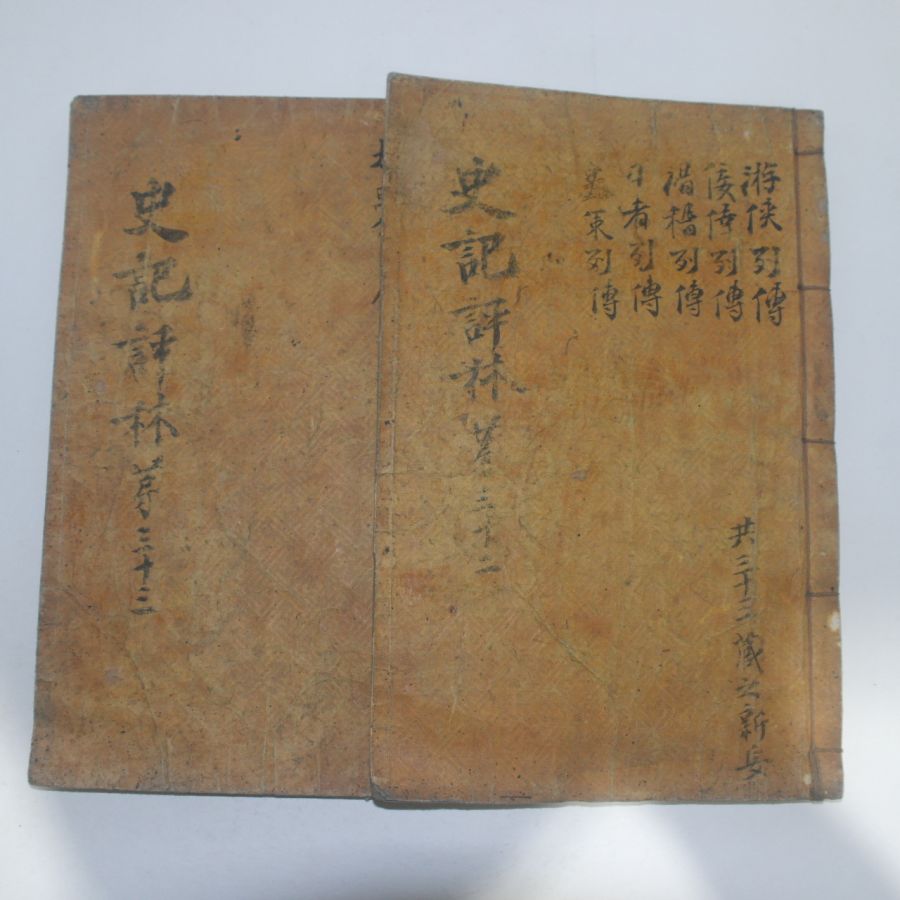 游侠列傳
佞倖列傳
滑稽列傳
日者列傳
策列傳
共三十三藏之新安
史記評林苐三十二
史記評林苐三十三